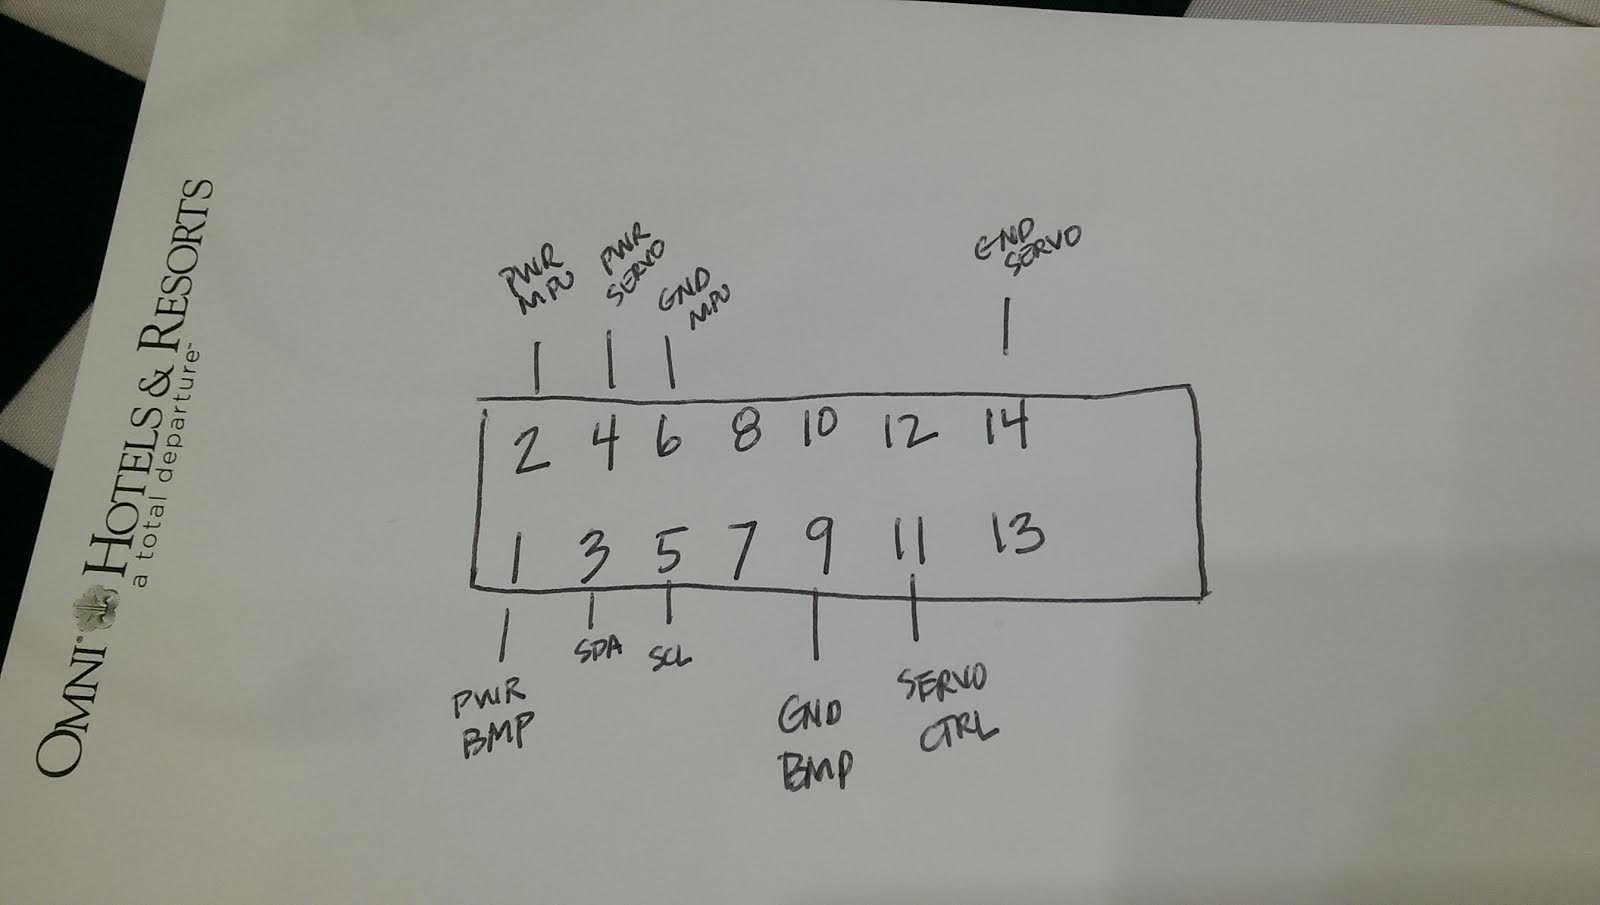 OMNI® HOTELS & RESORTS
a total departure™
PWR
MPU
PWR
SERVO
GND
MPU
GND
SERVO
2 4 6 8 10 12 14
1 3 5 7 9 11 13
PWR
BMP
SDA
SCL
GND
BMP
SERVO
CTRL